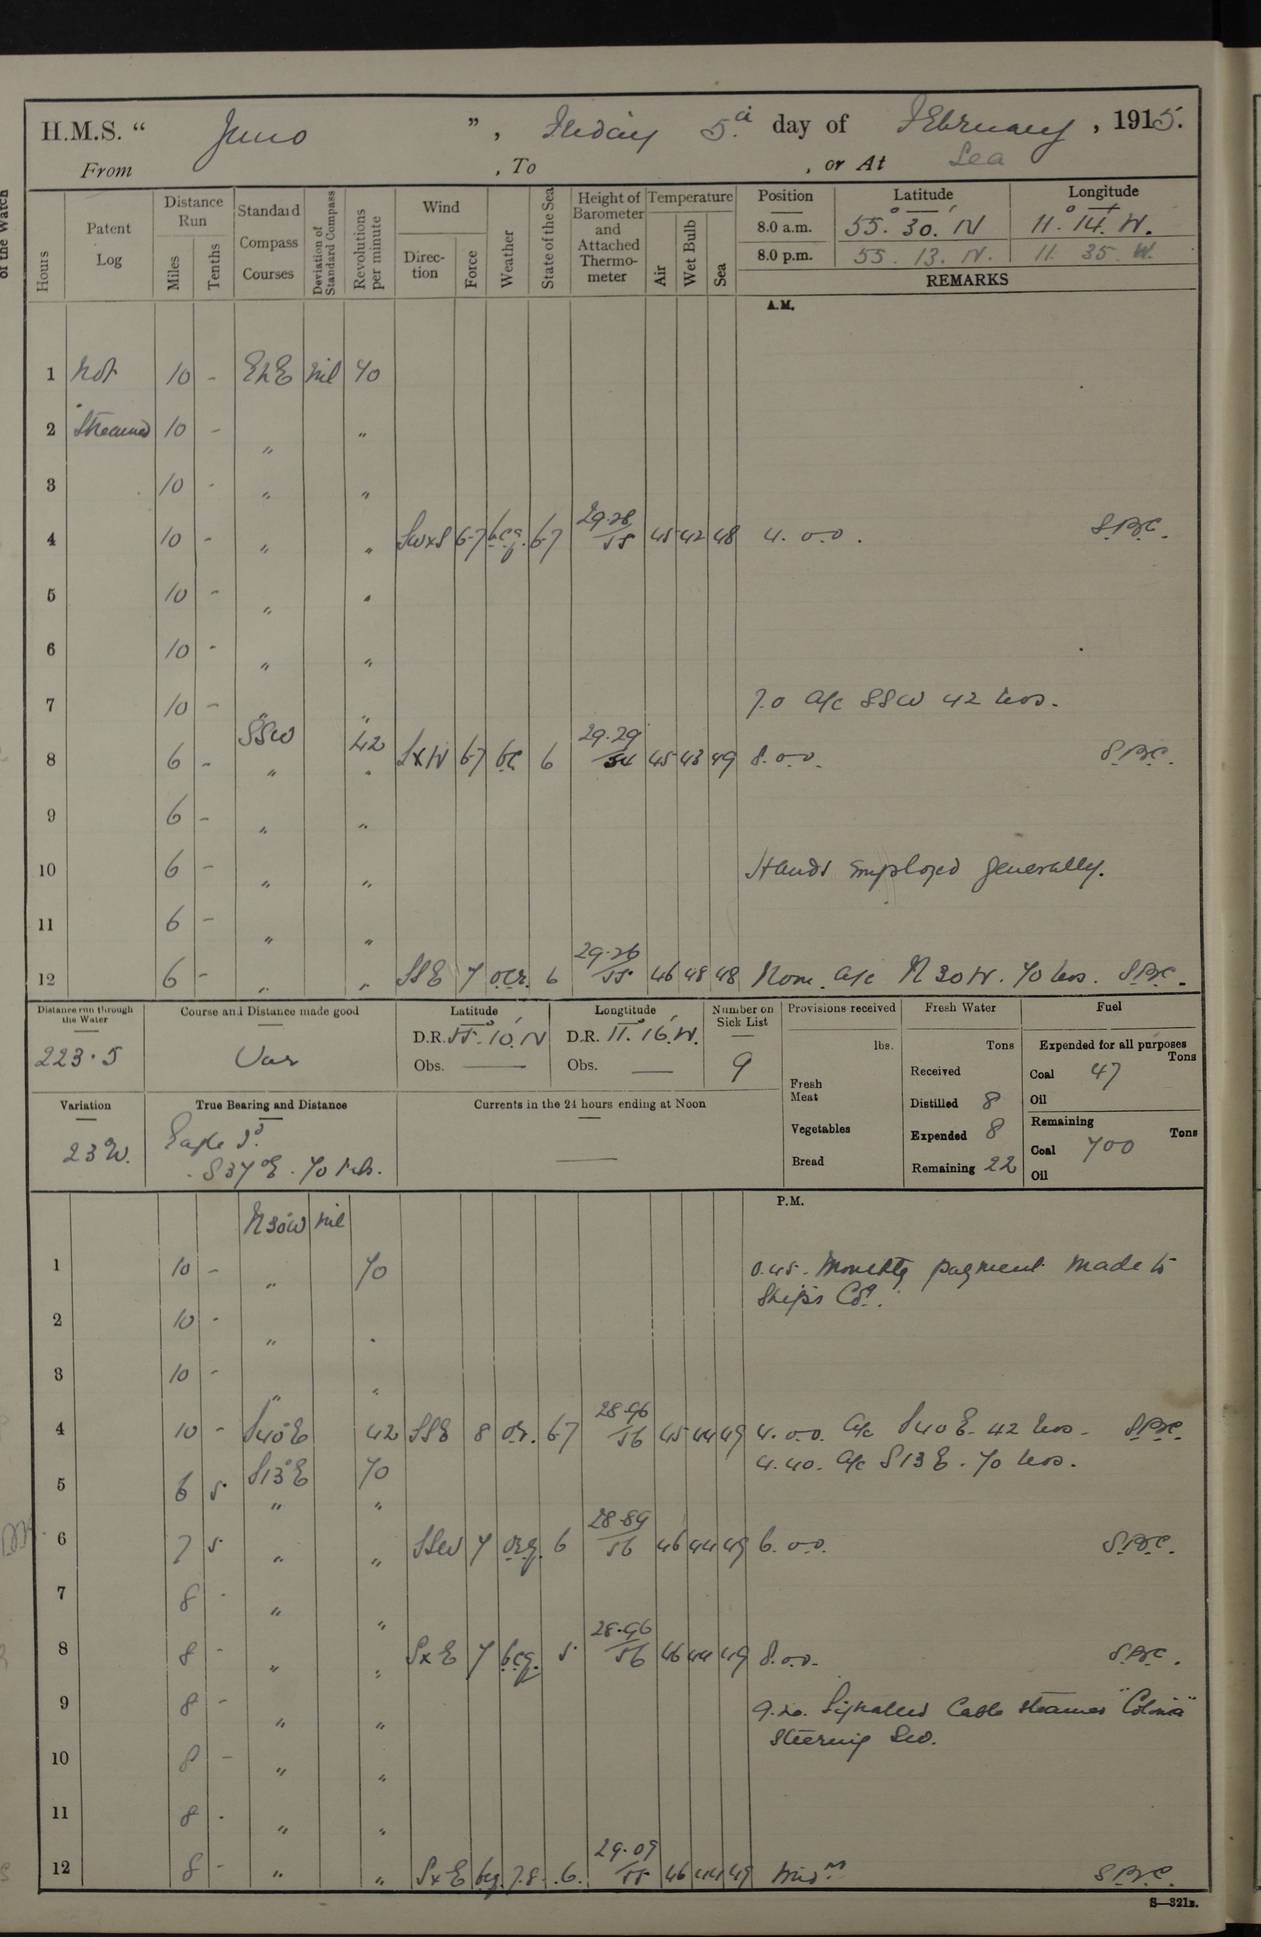 H.M.S. “ Juno ”, Friday 5th day of February, 1915.
From , To , or At Sea
Hours
Patent Log
Distance Run
Miles
Tenths
Standard Compass Courses
Deviation of Standard Compass
Revolutions per minute
Wind
Direction
Force
Weather
State of the Sea
Height of Barometer and Attached Thermometer
Temperature
Air
Wet Bulb
Sea
Position Latitude Longitude
8.0 a.m. 55. 30. N 11. 14. W.
8.0 p.m. 55. 13. N. 11. 35. W.
REMARKS
A.M.
1 Not 10 - nil 70
2 Streamed 10 - " "
3 10 - " "
4 10 - " " SWxS 6-7 bcq. 6-7 29.28/55 45 42 48 4. o.o. S.B.C.
5 10 - " "
6 10 - " "
7 10 - " " 7.0 a/c SSW 42 revs.
SSW 42
8 6 - " " SxW 6-7 bc 6 29.29/54 45 43 49 8. o.o. S.B.C.
9 6 - " "
10 6 - " " Hands employed generally.
11 6 - " "
12 6 - " " SSE 7 ocr. 6 29.26/55 46 48 48 Noon. a/c N 30 W. 70 revs. S.B.C.
Distance run through the Water
223.5
Course and Distance made good
Var
Latitude
D.R. 55. 10. N
Obs. ——
Longtitude
D.R. 11. 16. W.
Obs. ——
Number on Sick List
9
Provisions received
lbs.
Fresh Meat
Vegetables
Bread
Fresh Water
Tons
Received
Distilled 8
Expended 8
Remaining 22
Fuel
Expended for all purposes
Tons
Coal 47
Oil
Remaining
Tons
Coal 700
Oil
Variation
23 W.
True Bearing and Distance
Eagle Id.
S 37° E. 70 Mls.
Currents in the 24 hours ending at Noon
——
P.M.
N30W nil
1 10 - " 70 0.45. Monthly payment made to
Ship's Coy.
2 10 - " "
3 10 - " "
4 10 - S40°E 42 SSE 8 or. 6-7 28.96/56 45 44 49 4. o.o. a/c S40E. 42 revs. S.B.C.
S13°E 70 4.40. a/c S13E. 70 revs.
5 6 5 " "
6 7 5 " " SSW 7 orq. 6 28.89/56 46 44 49 6. o.o. S.B.C.
7 8 - " "
8 8 - " " SxE 7 bcq. 5 28.96/56 46 44 49 8. o.o. S.B.C.
9 8 - " " 9.20. Signalled Cable steamer "Colonia"
steering SW.
10 8 - " "
11 8 - " "
12 8 - " " SxE bcq. 7.8 6. 29.09/55 46 44 49 Midt. S.B.C.
S—321z.